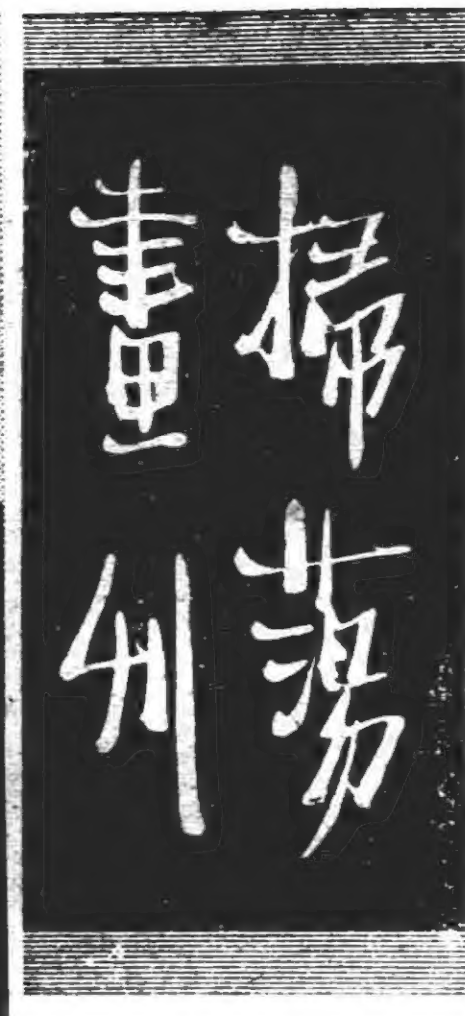 掃蕩
畫刊